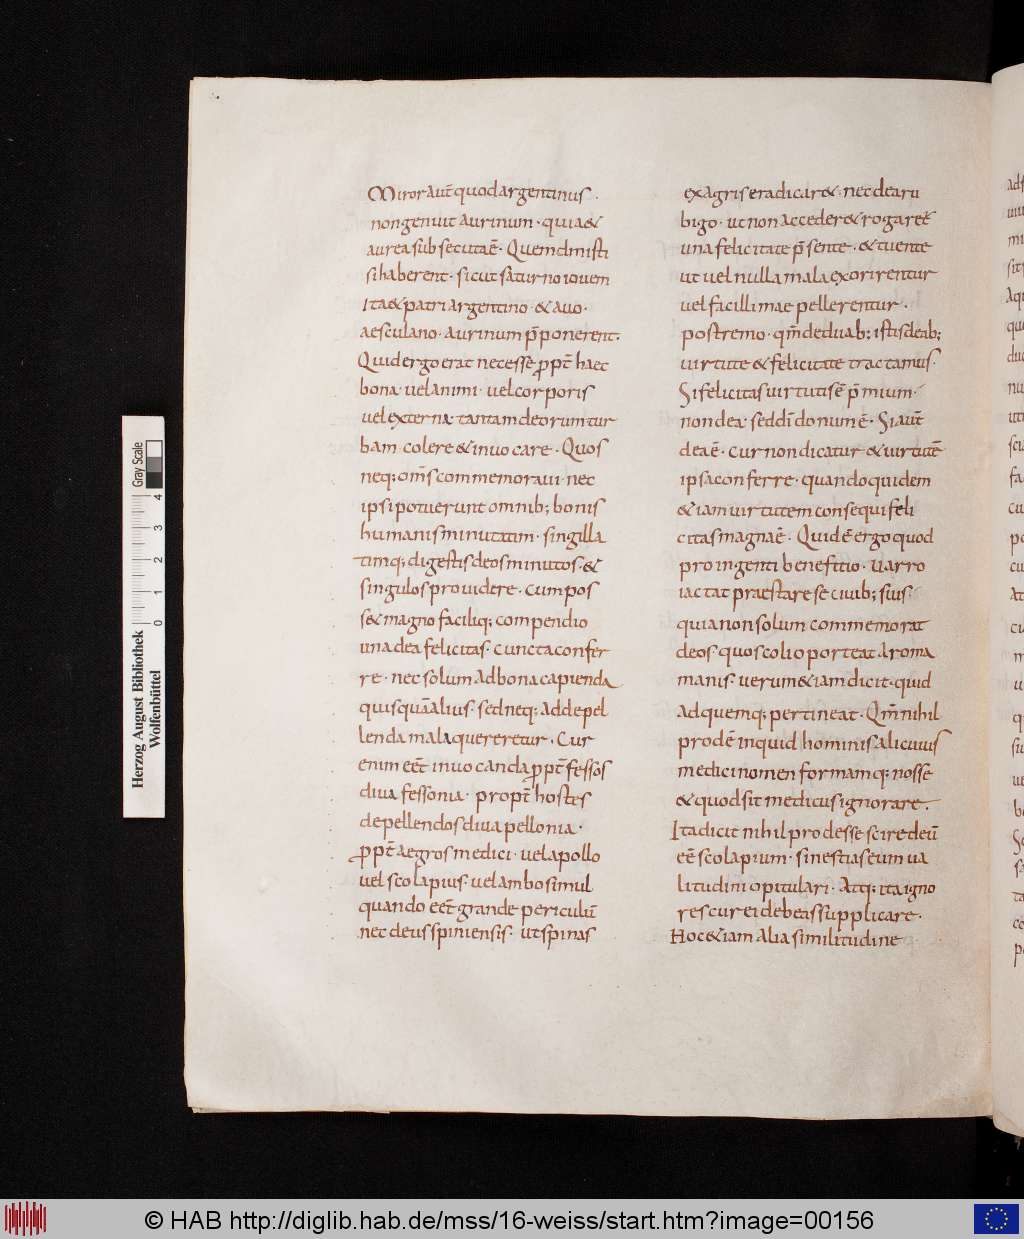 Miror aut̄ quod argentinus ·
non genuit aurinum · quia &
aurea sub secuta ē · Quem dm̄ isti
si haberent · sicut saturno iouem
Ita & patri argentino · & auo ·
aesculano · aurinum p̄ponerent ·
Quid ergo erat necesse ꝓpt̄ haec
bona · uel animi · uel corporis
uel externa · tantam deorum tur
bam · colere & inuocare · Quos
neq; om̄s commemoraui · nec
ipsi potuerunt omnib; bonis
humanis minutatim · singilla
timq; digestis deos minutos · &
singulos prouidere · cum pos
s& magno faciliq; compendio
una dea felicitas · cuncta confer
re · nec solum ad bona capienda
quisquā alius · sed neq; ad depel
lenda mala quereretur · Cur
enim eēt inuocanda ꝓpt̄ fessos
diua fessonia · propt̄ hostes
depellendos diua pellonia ·
ꝓpt̄ aegros medici · uel apollo
uel scolapius · uel ambo simul
quando eēt grande periculū
nec deus spiniensis · ut spinas
ex agris eradicar& · nec dea ru
bigo · ut non acceder& rogarēt
una felicitate p̄sente · & tuente
ut uel nulla mala exorirentur
uel facillimae pellerentur ·
postremo · qm̄ de duab; istis deab;
uirtute & felicitate tractamus ·
Si felicitas uirtutis ē p̄mium ·
non dea · sed dī donum ē · Si aut̄
dea ē · cur non dicatur & uirtutē
ipsa conferre · quando quidem
& iam uirtutem consequi feli
citas magna ē · Quid ē ergo quod
pro ingenti benefitio · Uarro
iactat praestare se ciuib; suis ·
quia non solum commemorat
deos · quos coli oporteat a roma
manis · uerum & iam dicit · quid
ad quemq; pertineat · Qm̄ nihil
prodē inquid hominis alicuius
medici nomen formamq; nosse
& quod sit medicus ignorare ·
Ita dicit nihil prodesse scire deū
eē scolapium · si nescias eum ua
litudini opitulari · Atq; ita igno
res cur ei debeas supplicare ·
Hoc & iam alia similitudine
Herzog August Bibliothek
Wolfenbüttel
0 1 2 3 4
Gray Scale
© HAB http://diglib.hab.de/mss/16-weiss/start.htm?image=00156